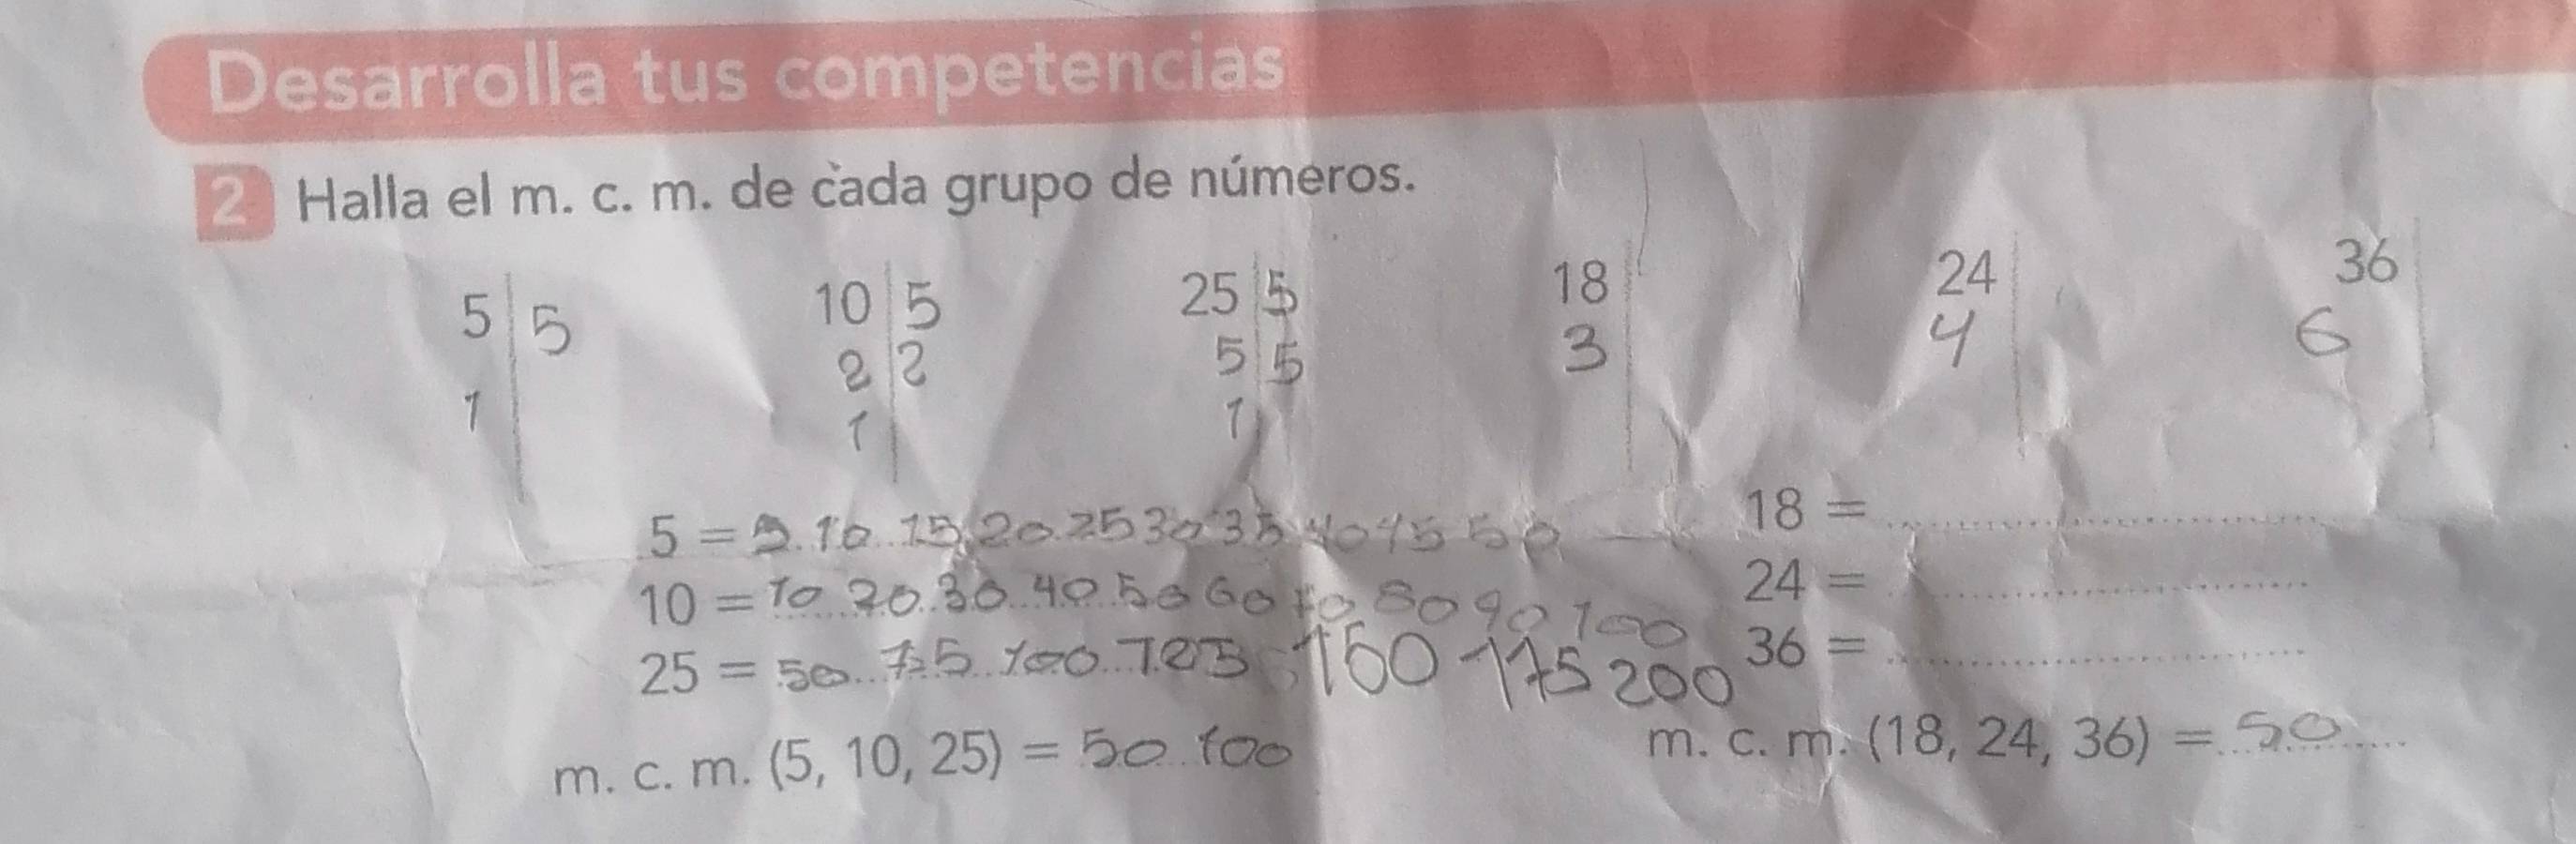 Desarrolla tus competencias
2 Halla el m. c. m. de cada grupo de números.
5 5 10 5 25 5 18 24 36
2 2 5 5 3 4 6
1 1 1
5 = 5 10 15 20 25 30 35 40 45 50
10 = 10 20 30 40 50 60 70 80 90 100
25 = 50 75 100 125 150 175 200
m. c. m. (5, 10, 25) = 50 100
18 =
24 =
36 =
m. c. m. (18, 24, 36) = 50